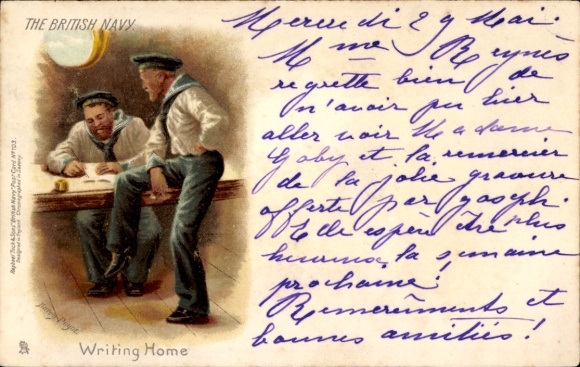 THE BRITISH NAVY.
Mercredi 29 Mai.
Mme Reynès
regrette bien de
n'avoir pu hier
aller voir Madame
Gaby et la remercier
de la jolie gravure
offerte par Joseph.
Elle espère être plus
heureuse la semaine
prochaine!
Remerciements et
bonnes amitiés!
Raphael Tuck & Sons' "British Navy" Post Card No 103.
Designed in England. Chromographed in Saxony.
Harry Payne
Writing Home